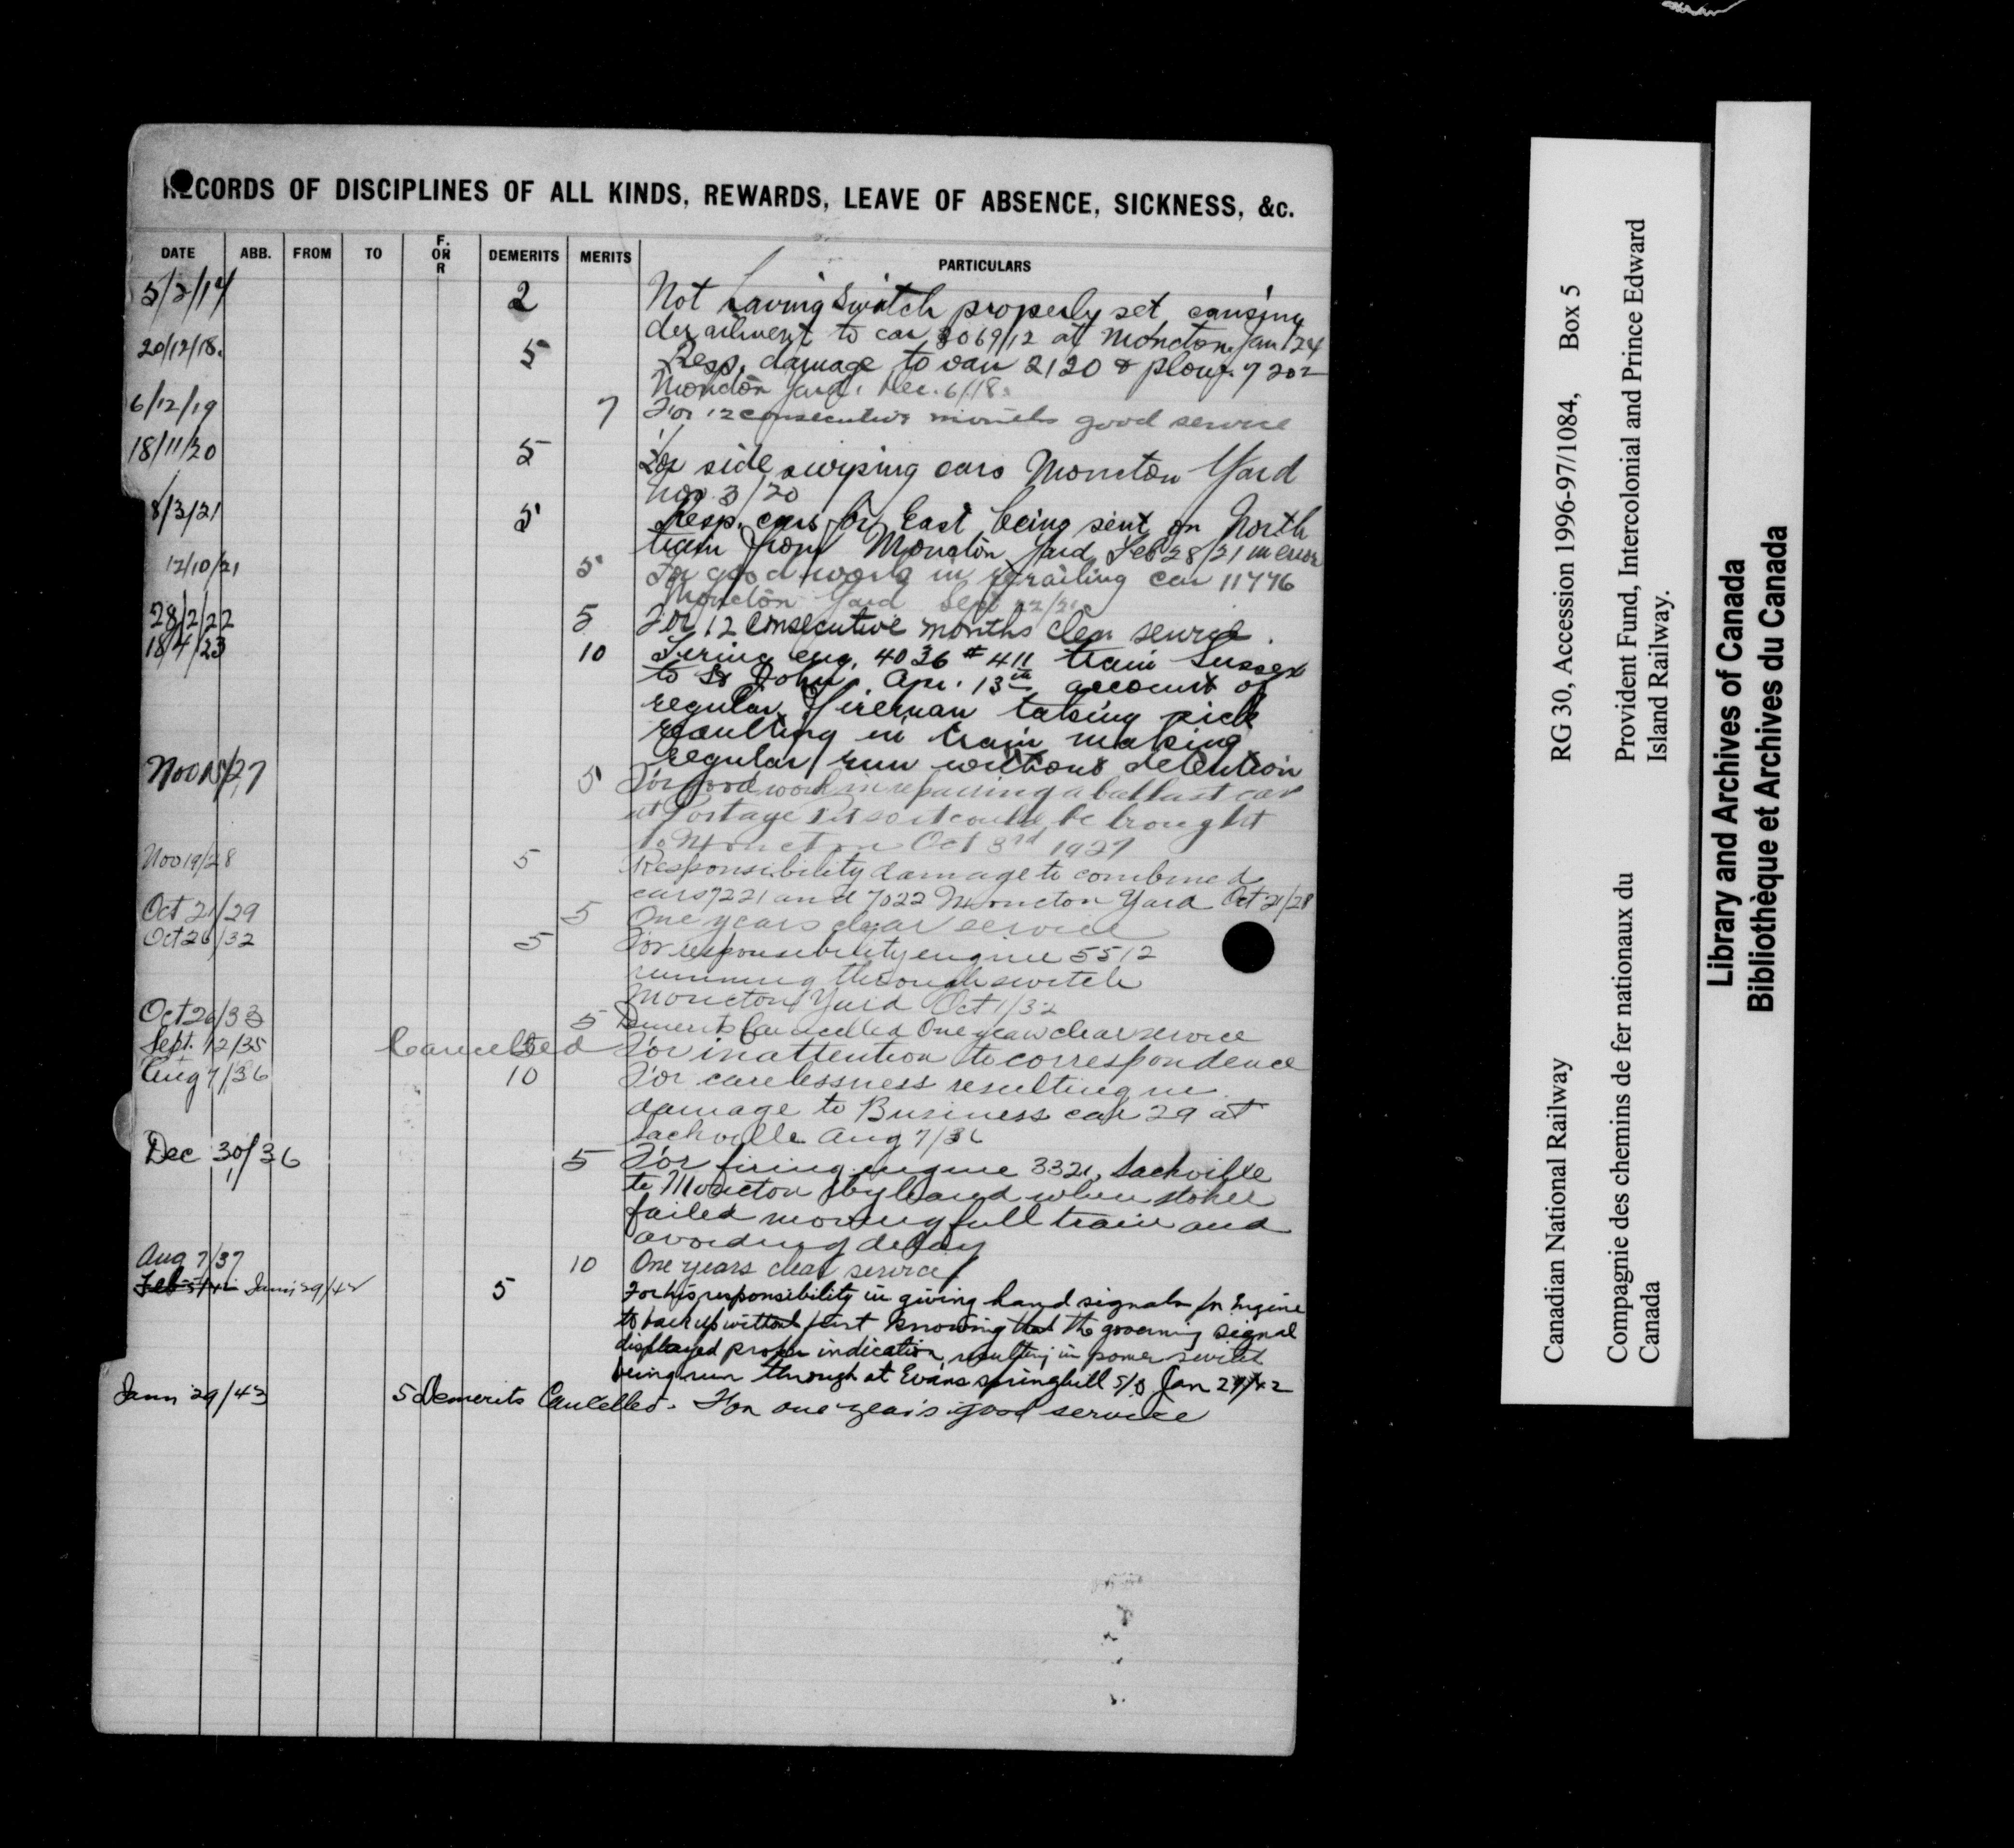 RECORDS OF DISCIPLINES OF ALL KINDS, REWARDS, LEAVE OF ABSENCE, SICKNESS, &c.
DATE ABB. FROM TO F. OR R DEMERITS MERITS PARTICULARS
5/2/14 2 Not having switch properly set causing
derailment to car 3069/12 at Moncton Jan 24
20/12/18. 5 Resp. damage to van 2120 & plow
Moncton Yard, Dec. 6/18.
6/12/19 7 For 12 consecutive months good service
18/11/20 5 For side swiping cars Moncton Yard
Nov. 3/20
8/3/21 5 Resp. cars for East being sent on North
train from Moncton Yard Feb 28/21 in error
12/10/21 5 For good work in rerailing car 11776
Moncton Yard Sept 22/21
28/2/22 5 For 12 consecutive months clear service.
18/4/23 10 Firing eng. 4036 #411 train Sussex
to St John, Apr. 13th account of
regular fireman taking sick
resulting in train making
regular run without detention
Nov 15/27 5 For good work in repairing a ballast car
at Portage Pit so it could be brought
to Moncton Oct 3rd 1927
Nov 19/28 5 Responsibility damage to combined
cars 7221 and 7022 Moncton Yard Oct 21/28
Oct 21/29 5 One years clear service
Oct 26/32 5 For responsibility engine 5512
running through switch
Moncton Yard Oct 1/32
Oct 26/33 5 Demerits Cancelled One years clear service
Sept. 12/35 Cancelled For inattention to correspondence
Aug 7/36 10 For carelessness resulting in
damage to Business car 29 at
Sackville Aug 7/36
Dec 30/36 5 For firing engine 3321, Sackville
to Moncton by hand when stoker
failed moving full train and
avoiding delay
Aug 7/37 10 One years clear service
Feb 5/42 Jany 29/42 5 For his responsibility in giving hand signals for Engine
to back up without first knowing that the governing signal
displayed proper indication, resulting in power switch
being run through at Evans springhill S/D Jan 29/42
Jany 29/43 5 Demerits Cancelled. For one year's good service
Canadian National Railway RG 30, Accession 1996-97/1084, Box 5
Compagnie des chemins de fer nationaux du Canada
Provident Fund, Intercolonial and Prince Edward Island Railway.
Library and Archives of Canada
Bibliothèque et Archives du Canada